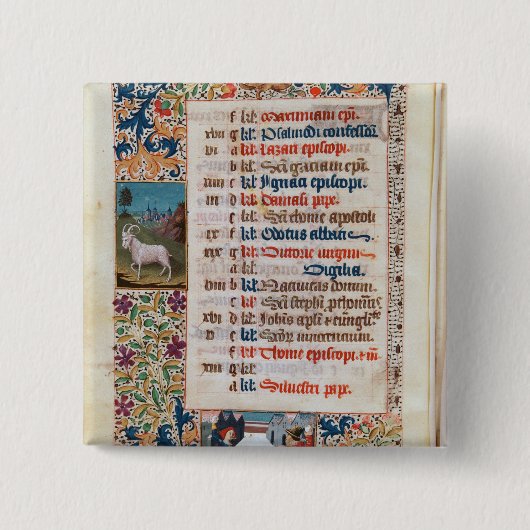 f kl. Maximiani epi.
xviii g kl. Psalmodi confessor
vi a kl. Lazari episcopi.
b kl. Sci gratiani epi.
xiiii c kl. Ignaci episcopi.
iii d kl. Damasi pape.
e kl. Sci thome apostoli
f kl. abbatis
xix g kl. Victorie virginis
a kl. Vigilia.
viii b kl. Nativitas domini.
c kl. Sci stephi prthomris
xvi d kl. Johis apli et euangl
v e kl. Scor innocentium.
f kl. Thome episcopi et m
xiii g kl.
a kl. Silvestri pape.